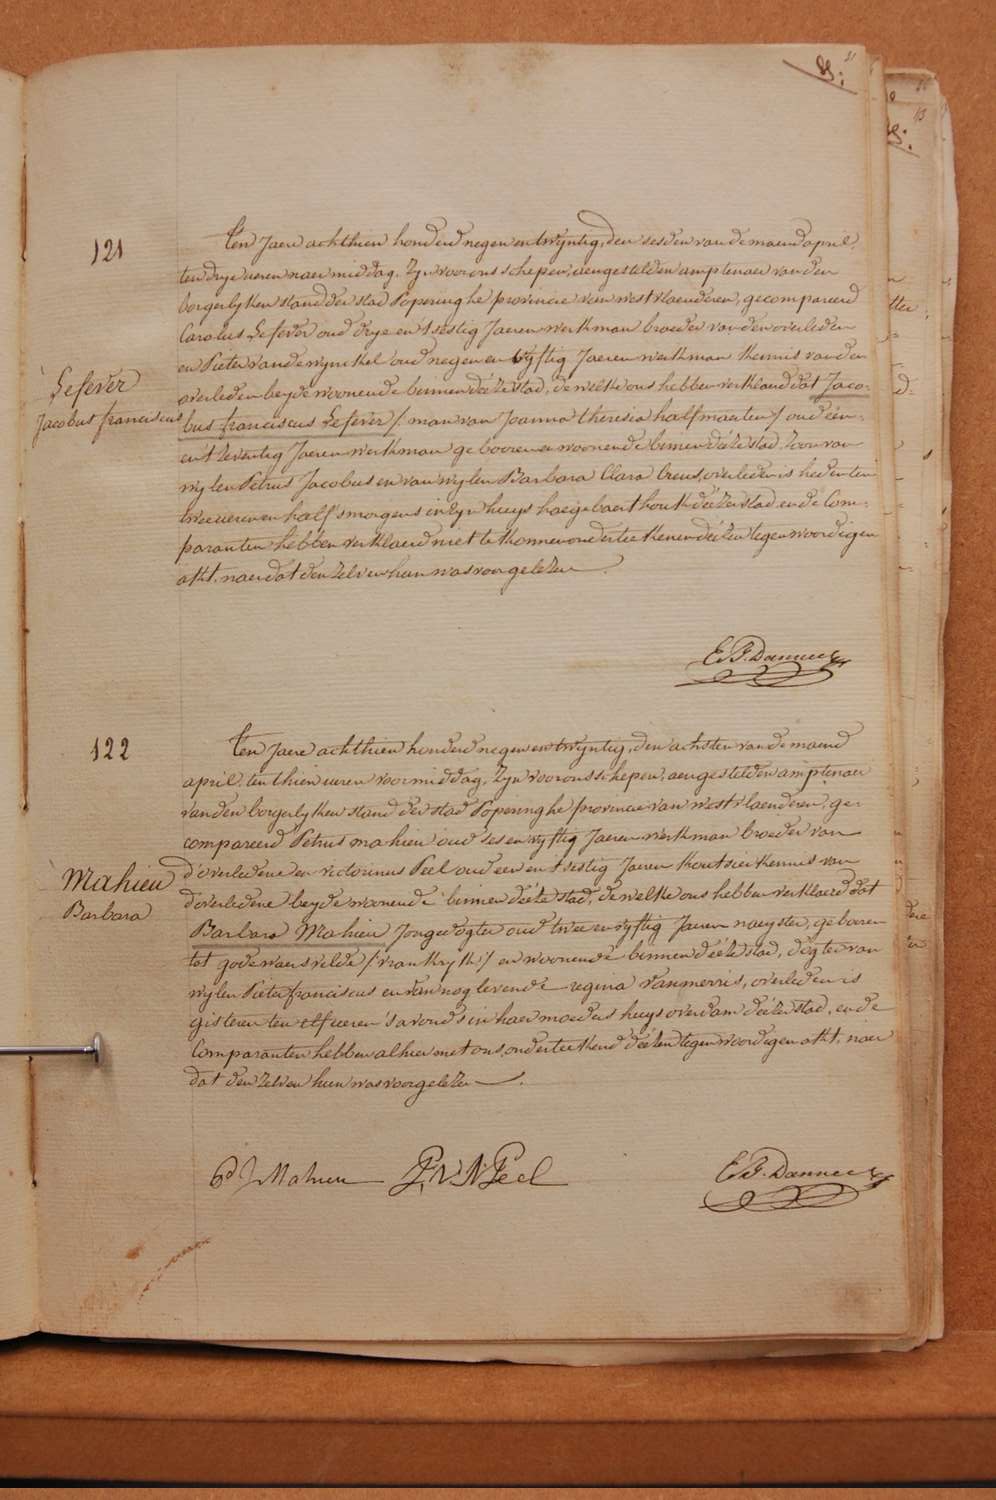 121
Lefever
Jacobus franciscus
Ten Jaere achthien honderd negen en twyntig, den sesden van de maend april,
ten drye ueren naer middag. Zyn voor ons schepen, aengestelden amptenaer van den
borgerlyken stand der stad Poperinghe provincie van westvlaenderen, gecompareerd
Carolus Lefever oud drye en 't sestig Jaeren werkman broeder van den overleden
en Pieter vandewynckel oud negen en vyftig Jaeren werkman kennis van den
overleden beyde woonende binnen déeze stad, de welke ons hebben verklaerd dat Jaco-
bus franciscus Lefever /: man van Joanna theresia halfmaerten :/ oud een-
en 't zeventig Jaeren werkman gebooren en woonende binnen déeze stad, Zoon van
wylen Petrus Jacobus en van wylen Barbara Clara Creus, overleden is heden ten
twee ueren en half 's morgens in zyn huys haegebaerthoek déezer stad, en de Com-
paranten hebben verklaerd niet te konnen onderteekenen déezen tegenwoordigen
akt, naer dat den zelven hun was voorgelezen.
E.F. Dannee
122
Mahieu
Barbara
Ten Jaere achthien honderd negen en twyntig, den achsten van de maend
april, ten thien ueren voormiddag, Zyn voor ons schepen, aengestelden amptenaer
van den borgerlyken stand der stad Poperinghe provincie van westvlaenderen, ge-
compareerd Petrus mahieu oud ses en vyftig Jaeren werkman broeder van
d'overledene en victorinus Peel oud een en 't sestig Jaeren koutsier kennis van
d'overledene beyde woonende binnen déeze stad, de welke ons hebben verklaerd dat
Barbara Mahieu Jongedogter oud twee en vyftig Jaeren naeyster, gebooren
tot godewaersvelde /: vrankryk :/ en woonende binnen déeze stad, dogter van
wylen Pieter franciscus en van nog levende regina Vanmerris, overleden is
gisteren ten elf ueren 's avonds in haer moeders huys overdam déezer stad, en de
Comparanten hebben alhier met ons onderteekend déezen tegenwoordigen akt, naer
dat den zelven hun was voorgelezen.
Pd J Mahieu
P, V, N Peel
E.F. Dannee